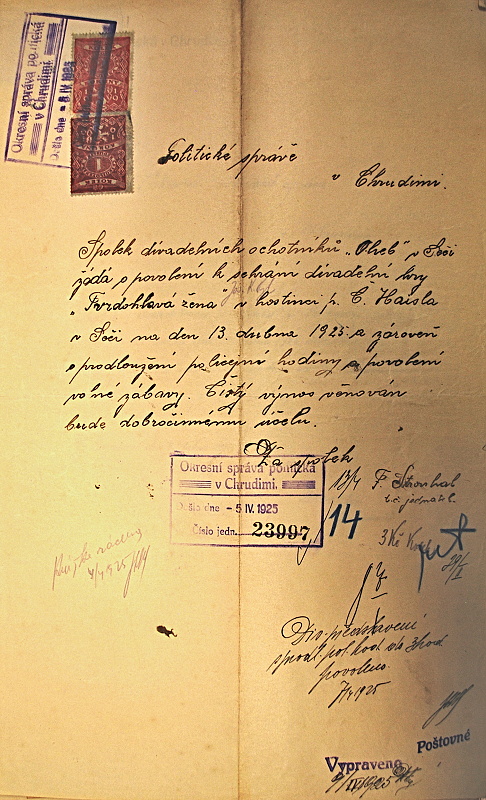 Okresní správa politická
v Chrudimi
Došlo dne - 5 IV. 1925
Politické správě
v Chrudimi.
Spolek divadelních ochotníků „Oheb“ v Seči
žádá o povolení k sehrání divadelní hry
„Tvrdohlavá žena“ v hostinci p. Č. Haisla
v Seči na den 13. dubna 1925 a zároveň
o prodloužení policejné hodiny a povolení
volné zábavy. Čistý výnos věnován
bude dobročinnému účelu.
Za spolek
Okresní správa politická
v Chrudimi.
Došlo dne - 5 IV. 1925
Číslo jedn. 23997
14
F. Strouhal
t. č. jednatel.
3 Kč
Div. představení
povoleno.
7/4 1925
Poštovné
Vypraveno